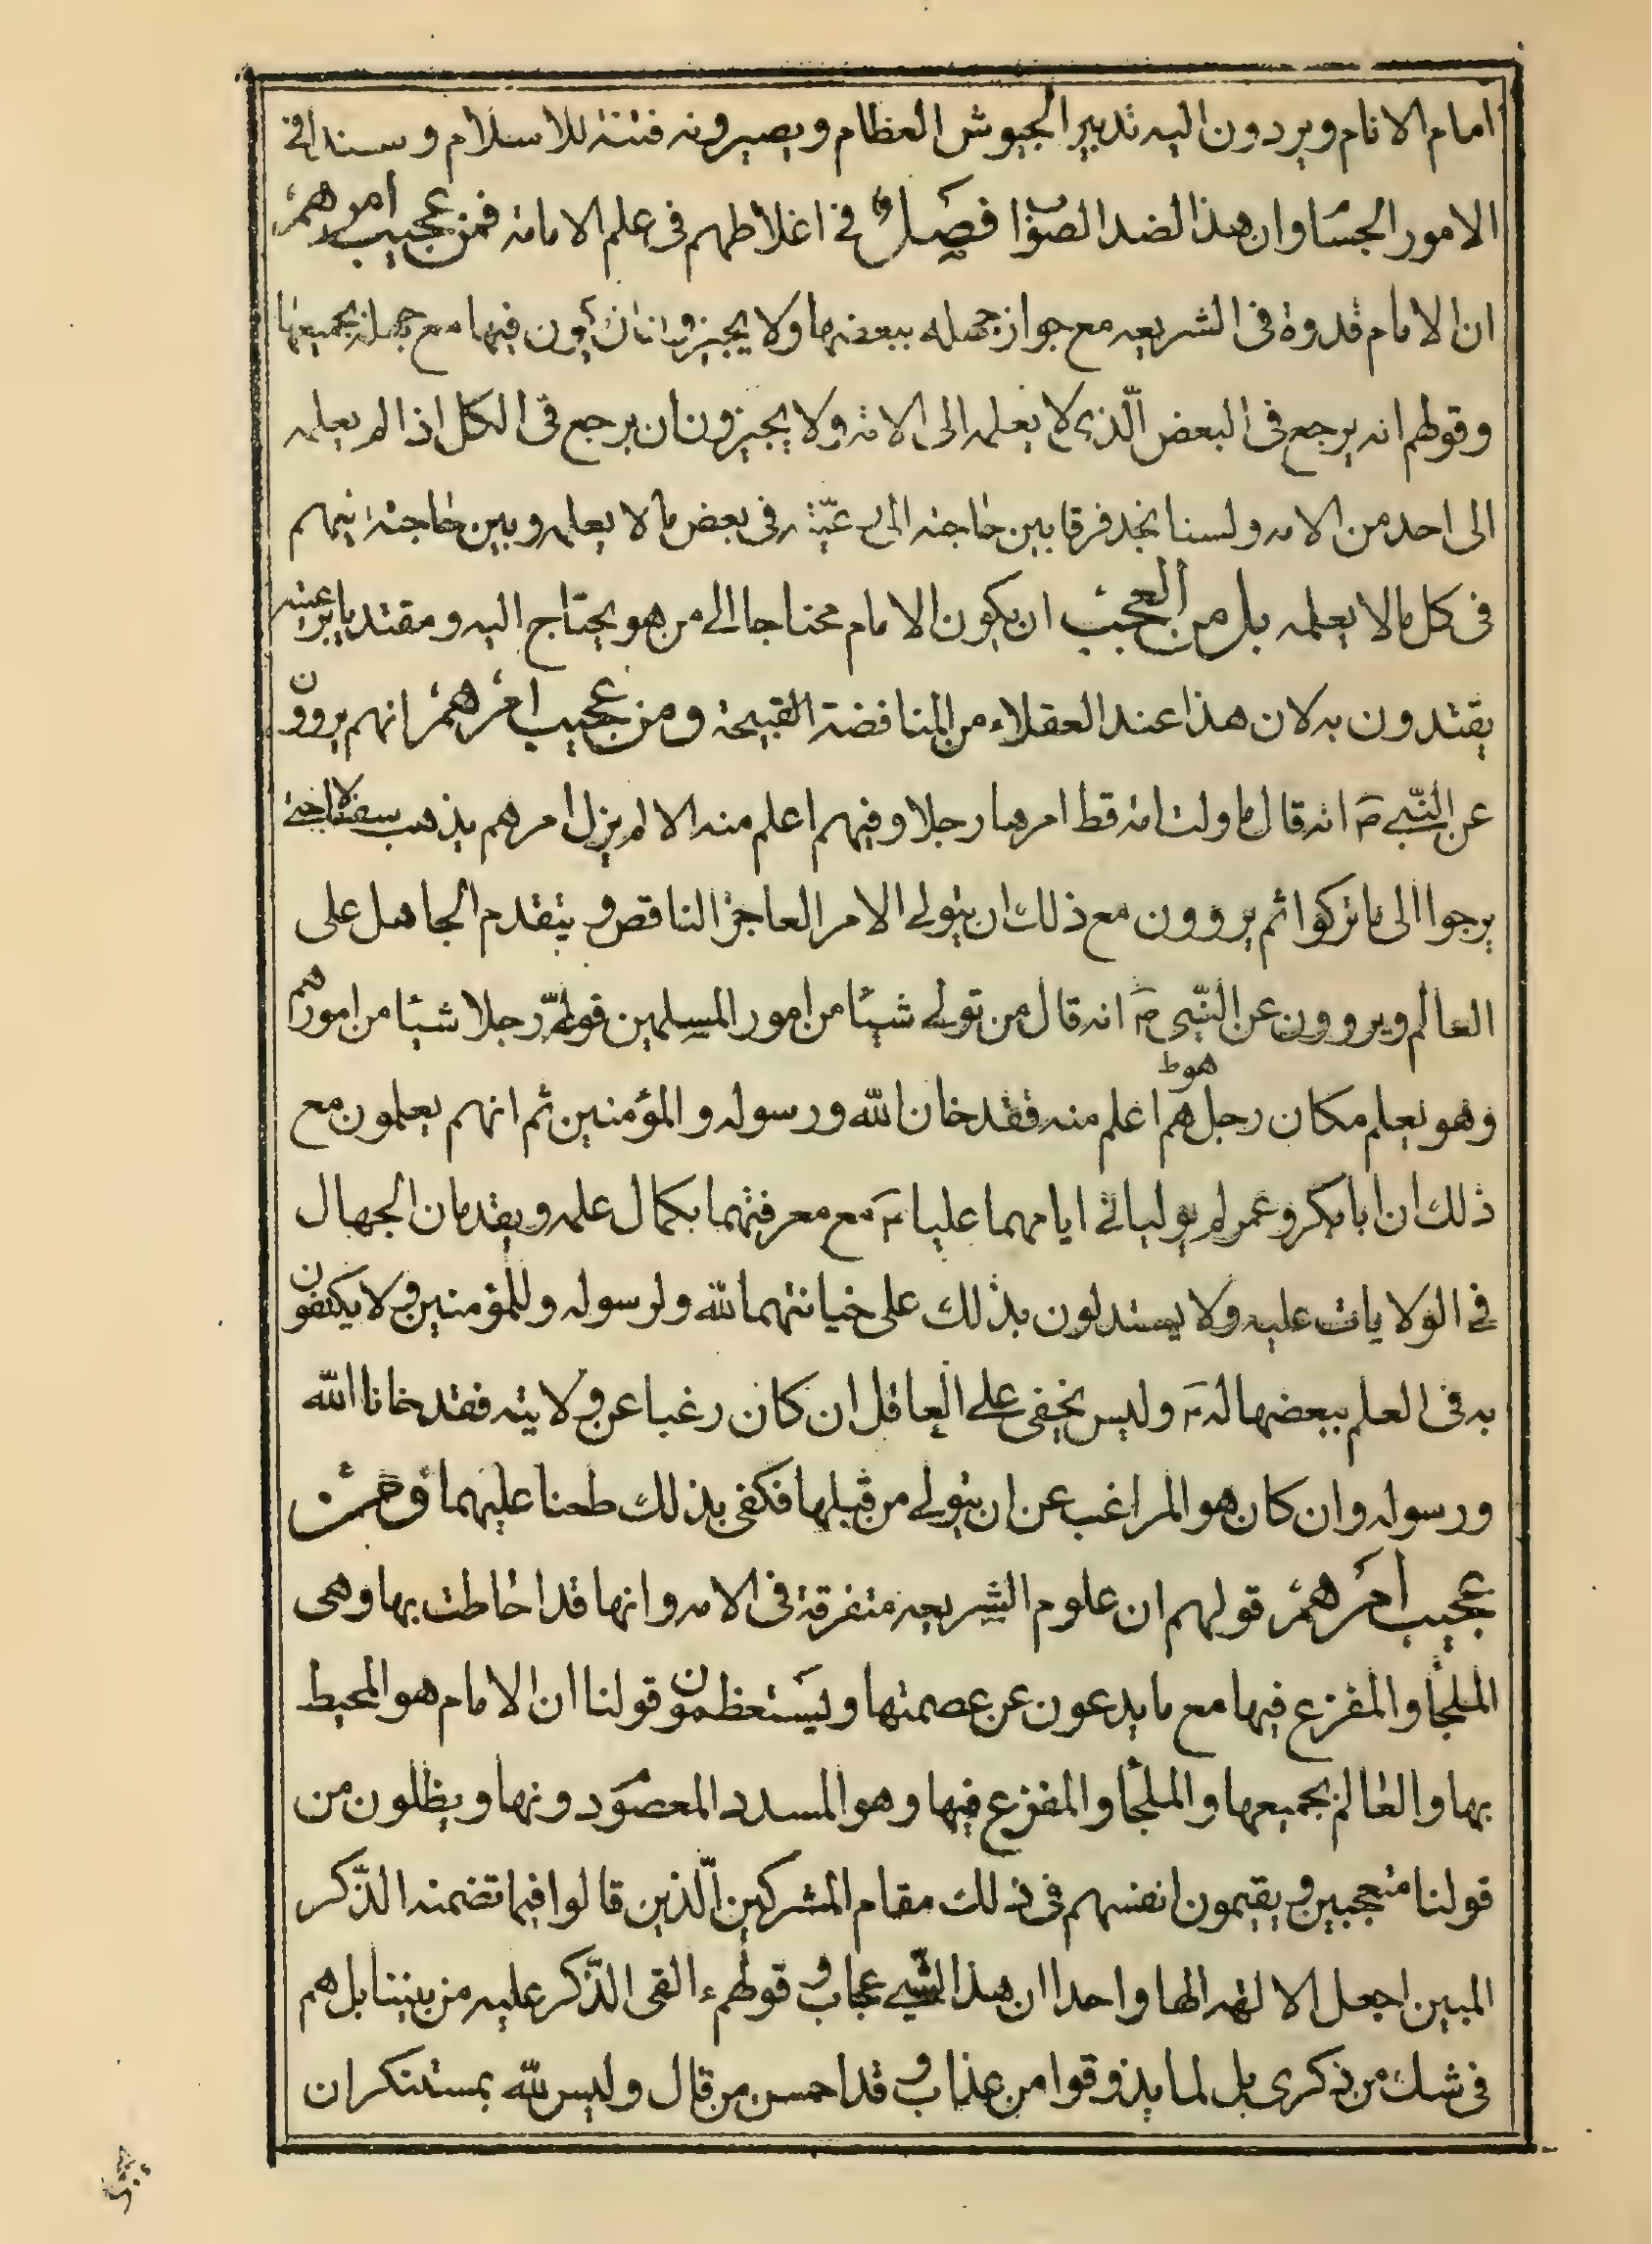 امام الانام ويردون اليه تدبير الجيوش العظام ويصيرونه فتنة للاسلام وسندا فى
الامور الجسا وان هذا لضد الصوا فصل فى اغلاطهم فى علم الامامة فمن عجيب امرهم
ان الامام قدوة فى الشريعه مع جواز جهله ببعضها ولا يجيزون ان يكون فيها مع جهله بجميعها
وقولهم انه يرجع فى البعض الّذى لا يعلمه الى الامة ولا يجيزون ان يرجع فى الكل اذا لم يعلمه
الى احد من الامه ولسنا نجد فرقا بين حاجته الى رعيّته فى بعض ما لا يعلمه وبين حاجته اليهم
فى كل ما لا يعلمه بل من العجب ان يكون الامام محتاجا الى من هو يحتاج اليه ومقتديا برعيته
يقتدون به لان هذا عند العقلاء من المناقضة القبيحة ومن عجيب امرهم انهم يروون
عن النّبى ص انه قال ما ولت امة قط امرها رجلا وفيهم اعلم منه الا لم يزل امرهم يذهب سفالا حتى
يرجوا الى ما تركوا ثم يروون مع ذلك ان يتولى الامر العاجز الناقص ويتقدم الجاهل على
العالم ويروون عن النّبى ص انه قال من تولى شيئا من امور المسلمين فولىّ رجلا شيئا من امورهم
وهو يعلم مكان رجل هم اعلم منه فقد خان الله ورسوله والمؤمنين ثم انهم يعلمون مع
هو ط
ذلك ان ابا بكر وعمر لم يوليا فى ايامهما عليا ع مع معرفتهما بكمال علمه ويقدمان الجهال
فى الولايات عليه ولا يستدلون بذلك على خيانتهما لله ولرسوله وللمؤمنين ولا يكتفون
به فى العلم ببعضها له ع وليس يخفى على العاقل ان كان رغبا عن ولايته فقد خانا الله
ورسوله وان كان هو المراغب عن ان يتولى من قبلها فكفى بذلك طعنا عليهما ومن
عجيب امرهم قولهم ان علوم الشريعه متفرقة فى الامه وانها قد احاطت بها وهى
الملجأ والمفزع فيها مع ما يدعون عن عصمتها ويستعظمون قولنا ان الامام هو المحيط
بها والعالم بجميعها والملجأ والمفزع فيها وهو المسدد المعصود ونها ويظلون من
قولنا متعجبين ويقيمون انفسهم فى ذلك مقام المشركين الّذين قالوا فيما تضمنه الذّكر
المبين اجعل الالهة الها واحدا ان هذا لشىء عجاب وقولهم ءالقى الذّكر عليه من بيننا بل هم
فى شك من ذكرى بل لما يذوقوا من عذاب وقد احسن من قال وليس لله بمستنكر ان